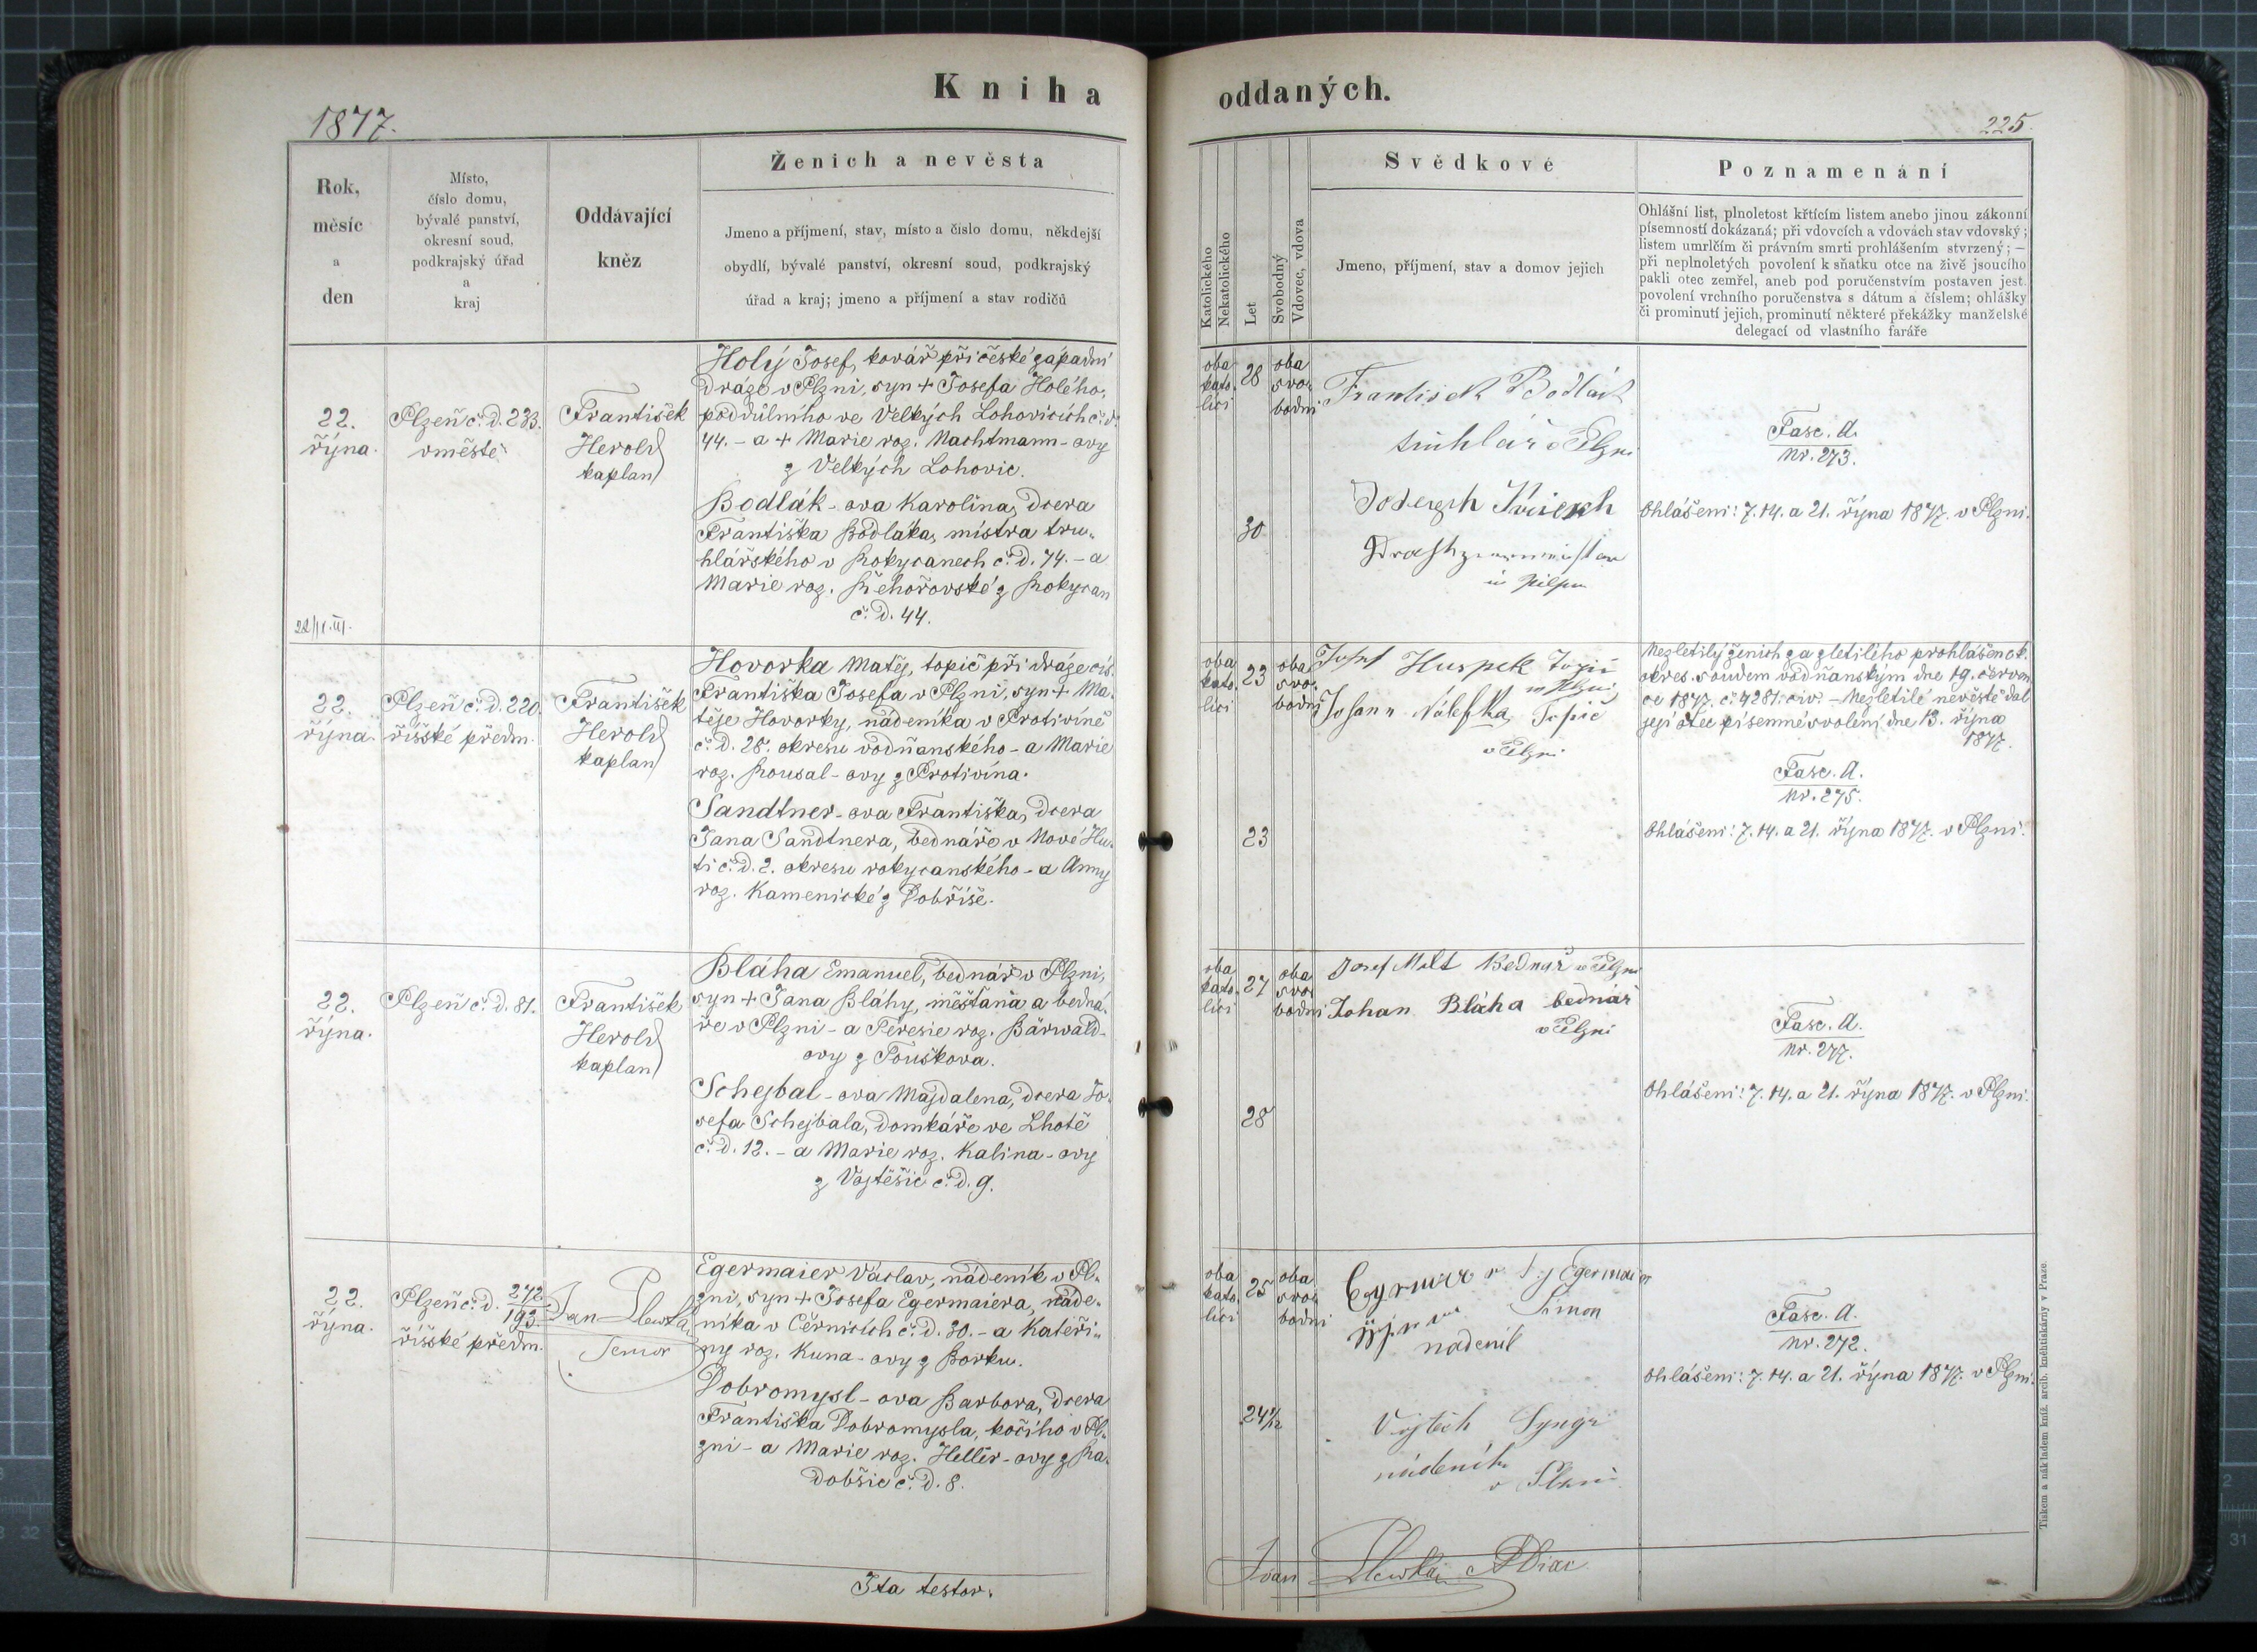 Kniha
1877.
Rok,
měsíc
a
den
Místo,
číslo domu,
bývalé panství,
okresní soud,
podkrajský úřad
a
kraj
Oddávající
kněz
Ženich a nevěsta
Jmeno a příjmení, stav, místo a číslo domu, někdejší
obydlí, bývalé panství, okresní soud, podkrajský
úřad a kraj; jmeno a příjmení a stav rodičů
22.
října.
Plzeň č. d. 233.
v městě
František
Herold
kaplan
Holý Josef, kovář při české západní
dráze v Plzni, syn + Josefa Holého,
poddůlního ve Velkých Lohovicích č. d.
44. - a + Marie roz. Nachtmann-ovy
z Velkých Lohovic.
Bodlák-ova Karolina, dcera
Františka Bodláka, mistra tru-
hlářského v Rokycanech č. d. 74. - a
Marie roz. Řehořovské z Rokycan
č. d. 44.
22.
října.
Plzeň č. d. 220.
říšské předm.
František
Herold
kaplan
Hovorka Matěj, topič při dráze cís.
Františka Josefa v Plzni, syn + Ma-
těje Hovorky, nádeníka v Protivíně
č. d. 28. okresu vodňanského - a Marie
roz. Rousal-ovy z Protivína.
Sandtner-ova Františka, dcera
Jana Sandtnera, bednáře v Nové Hu-
ti č. d. 2. okresu rokycanského - a Anny
roz. Kamenické z Dobříše.
22.
října.
Plzeň č. d. 81.
František
Herold
kaplan
Bláha Emanuel, bednář v Plzni,
syn + Jana Bláhy, měšťana a bedná-
ře v Plzni - a Teresie roz. Bärwald-
ovy z Touškova.
Schejbal-ova Majdalena, dcera Jo-
sefa Schejbala, domkáře ve Lhotě
č. d. 12. - a Marie roz. Kalina-ovy
z Vojtěšic č. d. 9.
22.
října.
Plzeň č. d. 272
193.
říšské předm.
Jan
Egermaier Václav, nádeník v Pl-
zni, syn + Josefa Egermaiera, náde-
níka v Černicích č. d. 30. - a Kateři-
ny roz. Kuna-ovy z Borku.
Dobromysl-ova Barbora, dcera
Františka Dobromysla, kočího v Pl-
zni - a Marie roz. Heller-ovy z Ra-
dobšic č. d. 8.
Ita testor.
oddaných.
225.
Katolického
Nekatolického
Let
Svobodný
Vdovec, vdova
Svědkové
Jmeno, příjmení, stav a domov jejich
Poznamenání
Ohlášní list, plnoletost křtícím listem anebo jinou zákonní
písemností dokázaná; při vdovcích a vdovách stav vdovský;
listem umrlčím či právním smrti prohlášením stvrzený; —
při neplnoletých povolení k sňatku otce na živě jsoucího
pakli otec zemřel, aneb pod poručenstvím postaven jest
povolení vrchního poručenstva s dátum a číslem; ohlášky
či prominutí jejich, prominutí některé překážky manželské
delegací od vlastního faráře
oba
kato-
lící
28
oba
svo-
bodni
30
František Bodlák
truhlář v Plzni
in Pilsen
Fasc. A.
Nr. 273.
Ohlášeni: 7. 14. a 21. října 1877. v Plzni.
oba
kato-
lící
23
oba
svo-
bodni
23
Josef Huspek Topič
Johann Topič
v Plzni
Nezletilý ženich za zletilého prohlášen c. k.
okres. soudem vodňanským dne 19. červen-
ce 1877. č. 4281. civ. - Nezletilé nevěstě dal
její otec písemné svolení dne 13. října
1877.
Fasc. A.
Nr. 275.
Ohlášeni: 7. 14. a 21. října 1877. v Plzni.
oba
kato-
lící
27
oba
svo-
bodni
28
Josef Bednář v Plzni
Johan Bláha bednář
v Plzni
Fasc. A.
Nr. 277.
Ohlášeni: 7. 14. a 21. října 1877. v Plzni.
oba
kato-
lící
25
oba
svo-
bodni
Egermaier
Šimon
nadeník
Vojtěch
nádeník
v Plzni
Fasc. A.
Nr. 272.
Ohlášeni: 7. 14. a 21. října 1877. v Plzni.
Tiskem a nákladem kníž. arcib. knéhtiskárny v Praze.